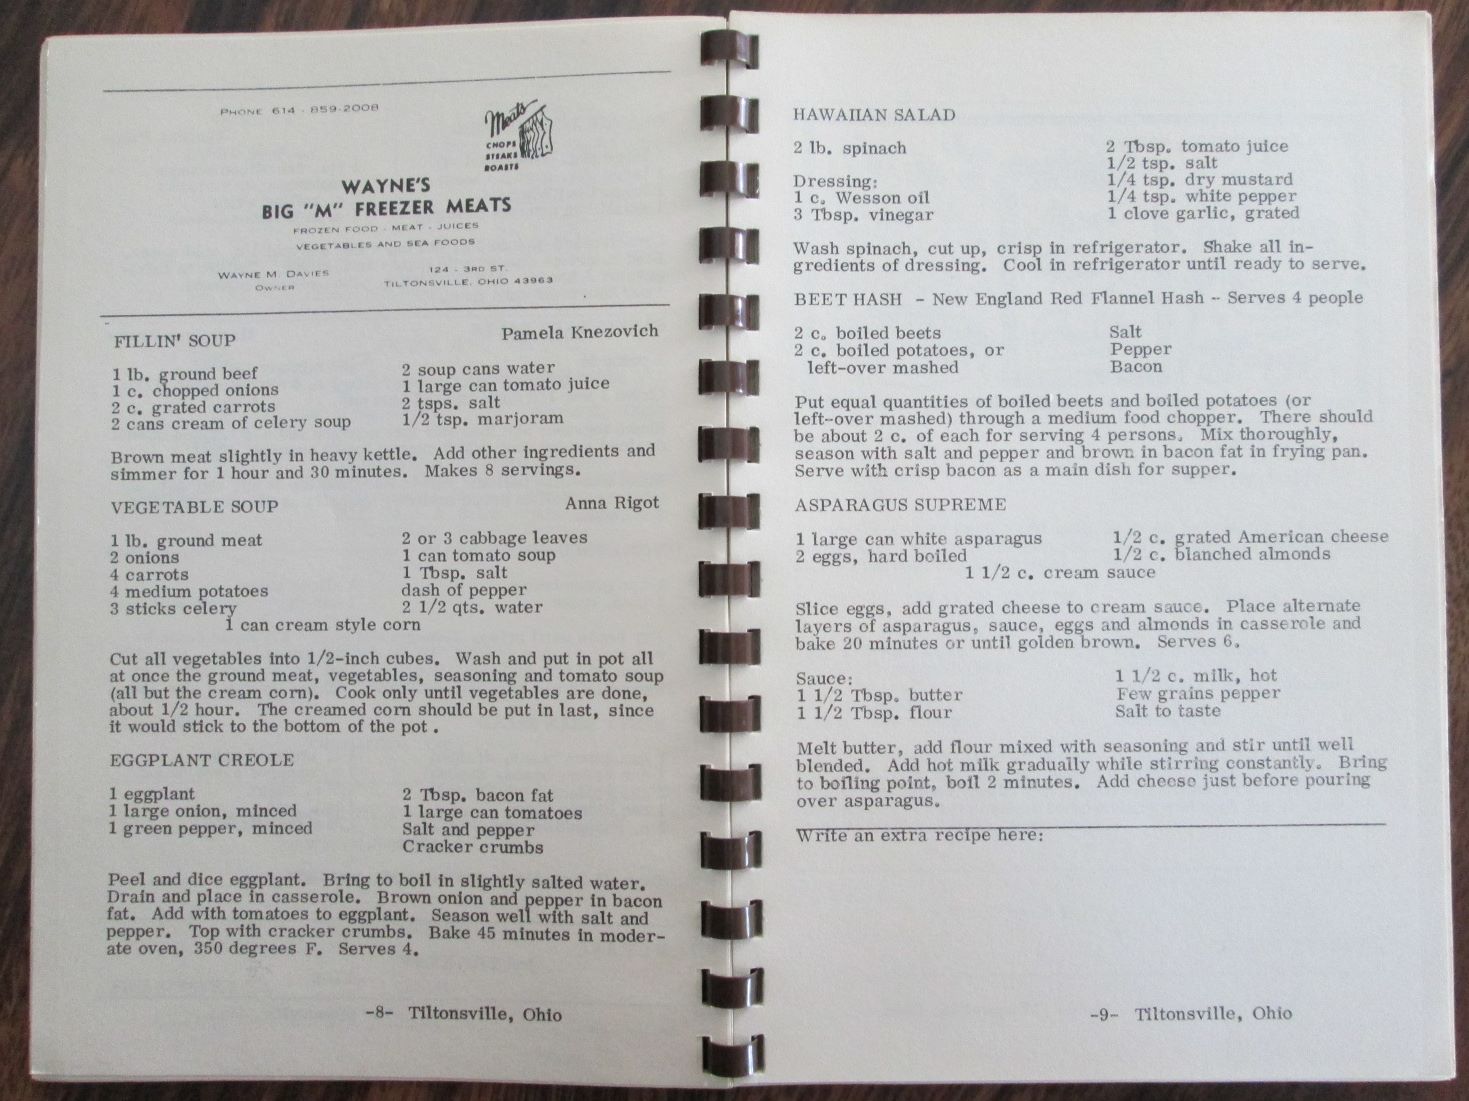 PHONE 614 - 859-2008
Meats
CHOPS
STEAKS
ROASTS
WAYNE'S
BIG "M" FREEZER MEATS
FROZEN FOOD - MEAT - JUICES
VEGETABLES AND SEA FOODS
WAYNE M. DAVIES
OWNER
124 - 3RD ST.
TILTONSVILLE, OHIO 43963
FILLIN' SOUP Pamela Knezovich
1 lb. ground beef 2 soup cans water
1 c. chopped onions 1 large can tomato juice
2 c. grated carrots 2 tsps. salt
2 cans cream of celery soup 1/2 tsp. marjoram
Brown meat slightly in heavy kettle. Add other ingredients and
simmer for 1 hour and 30 minutes. Makes 8 servings.
VEGETABLE SOUP Anna Rigot
1 lb. ground meat 2 or 3 cabbage leaves
2 onions 1 can tomato soup
4 carrots 1 Tbsp. salt
4 medium potatoes dash of pepper
3 sticks celery 2 1/2 qts. water
1 can cream style corn
Cut all vegetables into 1/2-inch cubes. Wash and put in pot all
at once the ground meat, vegetables, seasoning and tomato soup
(all but the cream corn). Cook only until vegetables are done,
about 1/2 hour. The creamed corn should be put in last, since
it would stick to the bottom of the pot .
EGGPLANT CREOLE
1 eggplant 2 Tbsp. bacon fat
1 large onion, minced 1 large can tomatoes
1 green pepper, minced Salt and pepper
Cracker crumbs
Peel and dice eggplant. Bring to boil in slightly salted water.
Drain and place in casserole. Brown onion and pepper in bacon
fat. Add with tomatoes to eggplant. Season well with salt and
pepper. Top with cracker crumbs. Bake 45 minutes in moder-
ate oven, 350 degrees F. Serves 4.
-8- Tiltonsville, Ohio
HAWAIIAN SALAD
2 lb. spinach 2 Tbsp. tomato juice
1/2 tsp. salt
Dressing: 1/4 tsp. dry mustard
1 c. Wesson oil 1/4 tsp. white pepper
3 Tbsp. vinegar 1 clove garlic, grated
Wash spinach, cut up, crisp in refrigerator. Shake all in-
gredients of dressing. Cool in refrigerator until ready to serve.
BEET HASH - New England Red Flannel Hash - Serves 4 people
2 c. boiled beets Salt
2 c. boiled potatoes, or Pepper
left-over mashed Bacon
Put equal quantities of boiled beets and boiled potatoes (or
left-over mashed) through a medium food chopper. There should
be about 2 c. of each for serving 4 persons. Mix thoroughly,
season with salt and pepper and brown in bacon fat in frying pan.
Serve with crisp bacon as a main dish for supper.
ASPARAGUS SUPREME
1 large can white asparagus 1/2 c. grated American cheese
2 eggs, hard boiled 1/2 c. blanched almonds
1 1/2 c. cream sauce
Slice eggs, add grated cheese to cream sauce. Place alternate
layers of asparagus, sauce, eggs and almonds in casserole and
bake 20 minutes or until golden brown. Serves 6.
Sauce: 1 1/2 c. milk, hot
1 1/2 Tbsp. butter Few grains pepper
1 1/2 Tbsp. flour Salt to taste
Melt butter, add flour mixed with seasoning and stir until well
blended. Add hot milk gradually while stirring constantly. Bring
to boiling point, boil 2 minutes. Add cheese just before pouring
over asparagus.
Write an extra recipe here:
-9- Tiltonsville, Ohio